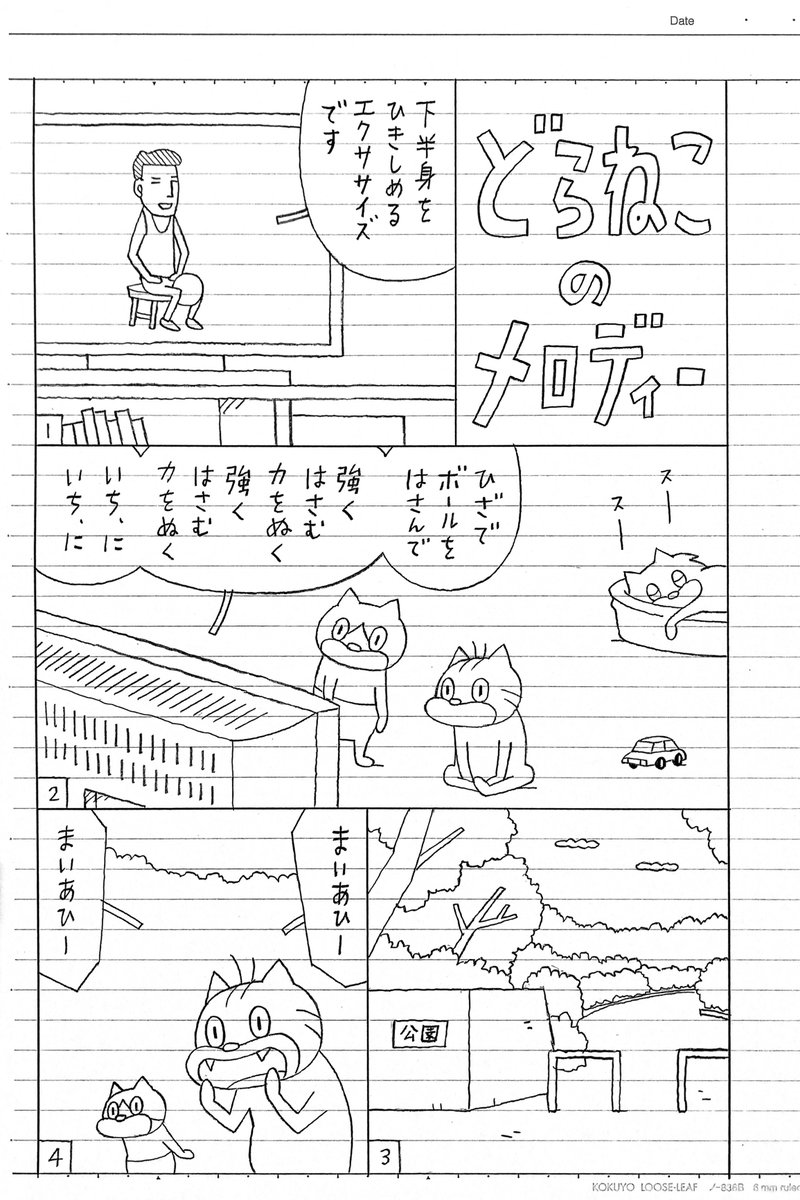 Date
どらねこ
の
メロディー
下半身を
ひきしめる
エクササイズ
です
1
スー
スー
ひざで
ボールを
はさんで
強く
はさむ
力をぬく
強く
はさむ
力をぬく
いち、に
いち、に
2
公園
3
まいあひー
まいあひー
4
KOKUYO LOOSE-LEAF ノ-836B 6 mm ruled